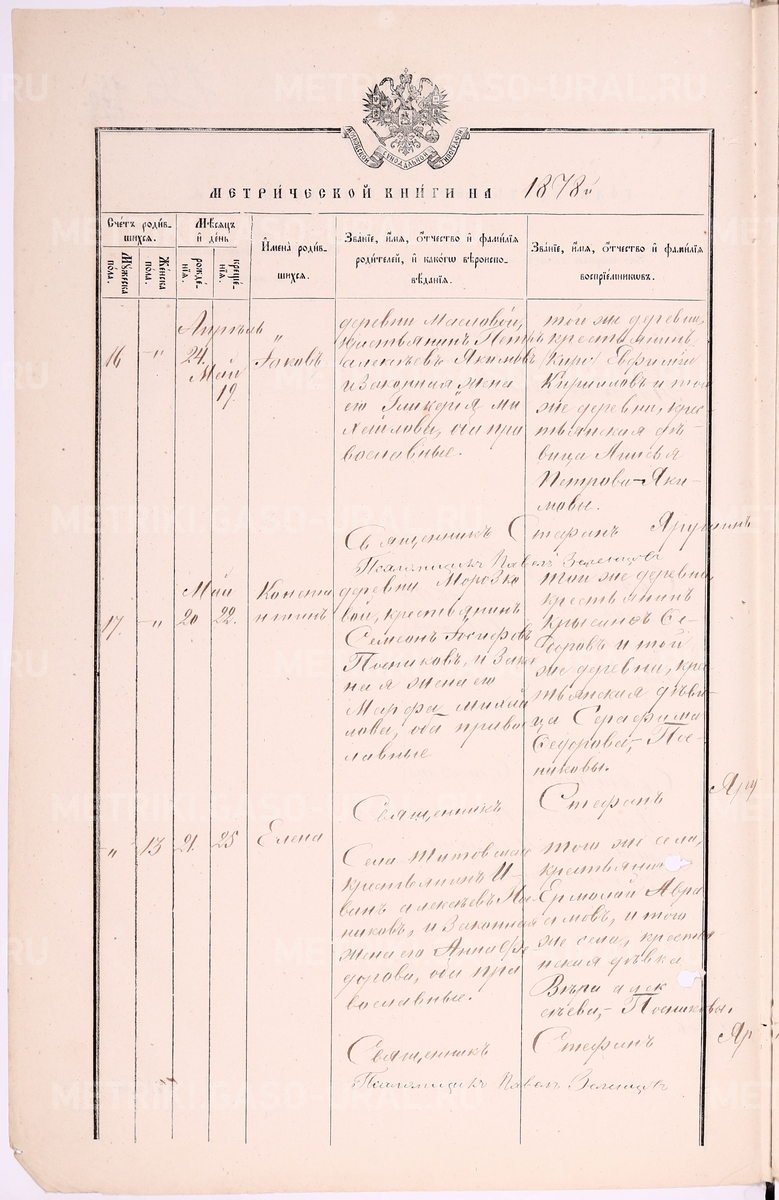 МЕТРИЧЕСКОЙ КНИГИ НА 1878й
Счетъ родив-
шихся.
Мужеска пола.
Женска пола.
Мѣсяцъ
и день
рожде-
нїя.
креще-
нїя.
Имена родив-
шихся.
Званїе, имя, отчество и фамилїя
родителей, и какого вѣроиспо-
вѣданїя.
Званїе, имя, отчество и фамилїя
воспрїемниковъ.
16 "
Апрѣль
24.
Май
19.
Іаковъ
деревни Масловой,
крестьянинъ Петръ
Алексѣевъ Якимовъ
и законная жена
его Гликерія Ми
хайлова, оба пра
вославные.
той же деревни,
крестьянинъ
Евфимій
Кирилловъ и той
же деревни, кресть-
янская дѣ-
вица Анисья
Петрова Яки-
мовы.
Священникъ Стефанъ
Псаломщикъ Павелъ Зеленцовъ
17. "
Май
20 22.
Конста
нтинъ
деревни Морозко
вой, крестьянинъ
Семеонъ Іосифовъ
Посниковъ, и Закон
ная жена его
Марфа Михай
лова, оба право
славные
той же деревни
крестьянинъ
Се-
и той
же деревни, крес
тьянская дѣви
ца Серафима
Сидорова, Пос-
никовы.
Священникъ Стефанъ Яру
" 13 21. 25
Елена
Села Титовскаго
крестьянинъ И-
ванъ Алексѣевъ Пос
никовъ, и Законная
жена его Анна Фе
дорова, оба пра
вославные.
того же села,
крестьянинъ
Ермолай Авра
амовъ, и того
же села, крестья
нская дѣвка
Вѣра Алек
сѣева, Посниковы.
Священникъ Стефанъ Яр
Псаломщикъ Павелъ Зеленцовъ
METRIKI.GASO-URAL.RU